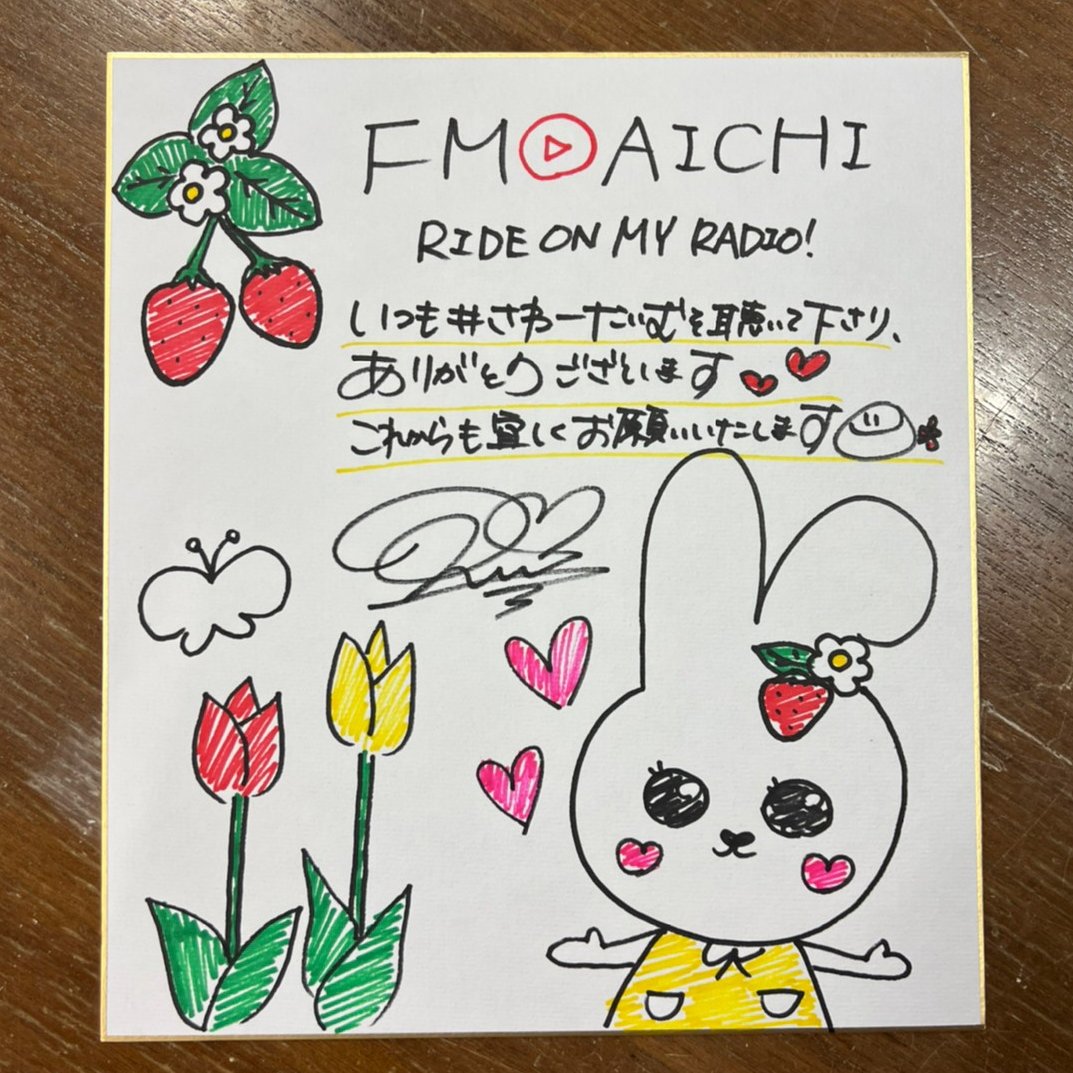 FM AICHI
RIDE ON MY RADIO!
いつも#さわーたいむを聴いて下さり、
ありがとうございます
これからも宜しくお願いいたします